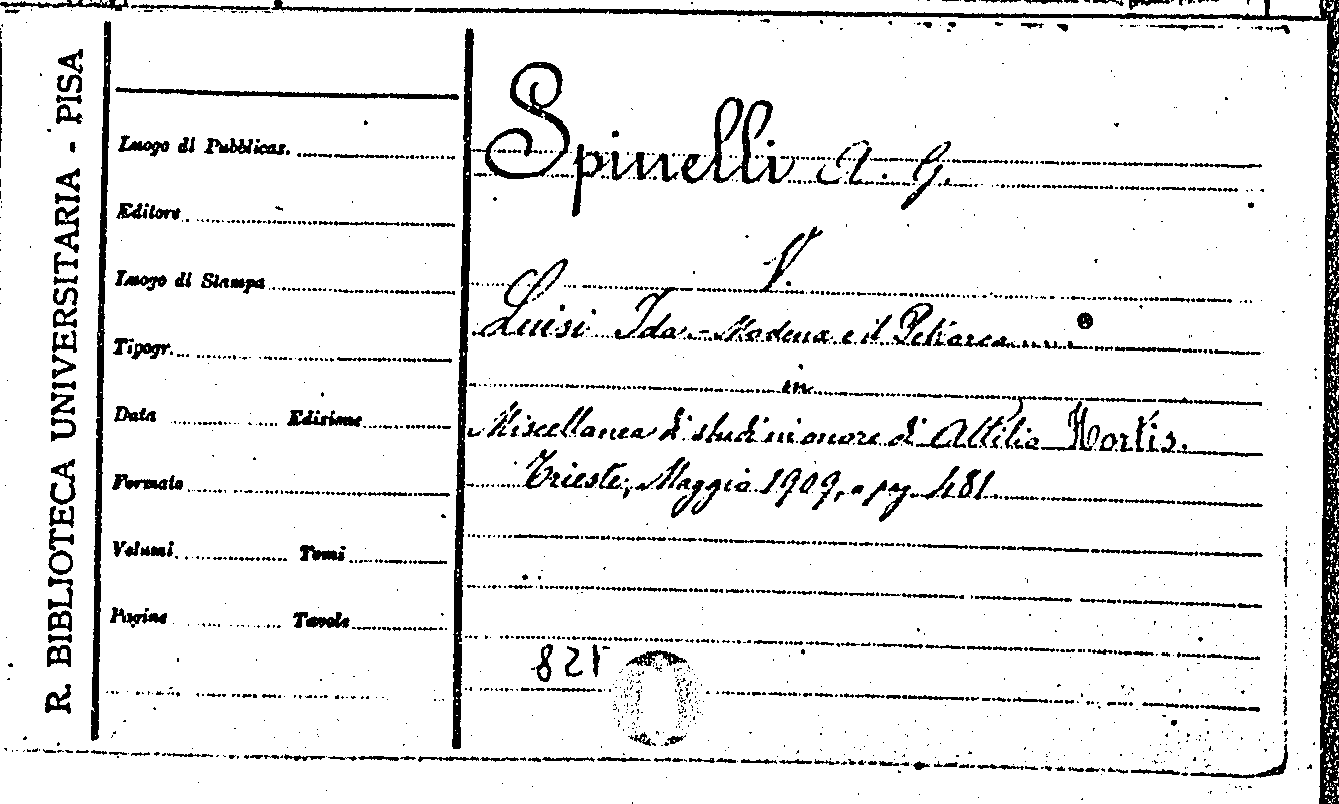 R. BIBLIOTECA UNIVERSITARIA - PISA
Luogo di Pubblicaz.
Editore
Luogo di Stampa
Tipogr.
Data Edizione
Formato
Volumi Tomi
Pagine Tavole
Spinelli A. G.
V.
Luisi Ida - Modena e il Petrarca
in
Miscellanea di studi in onore di Attilio Hortis.
Trieste, Maggio 1909, a pag. 481.
821